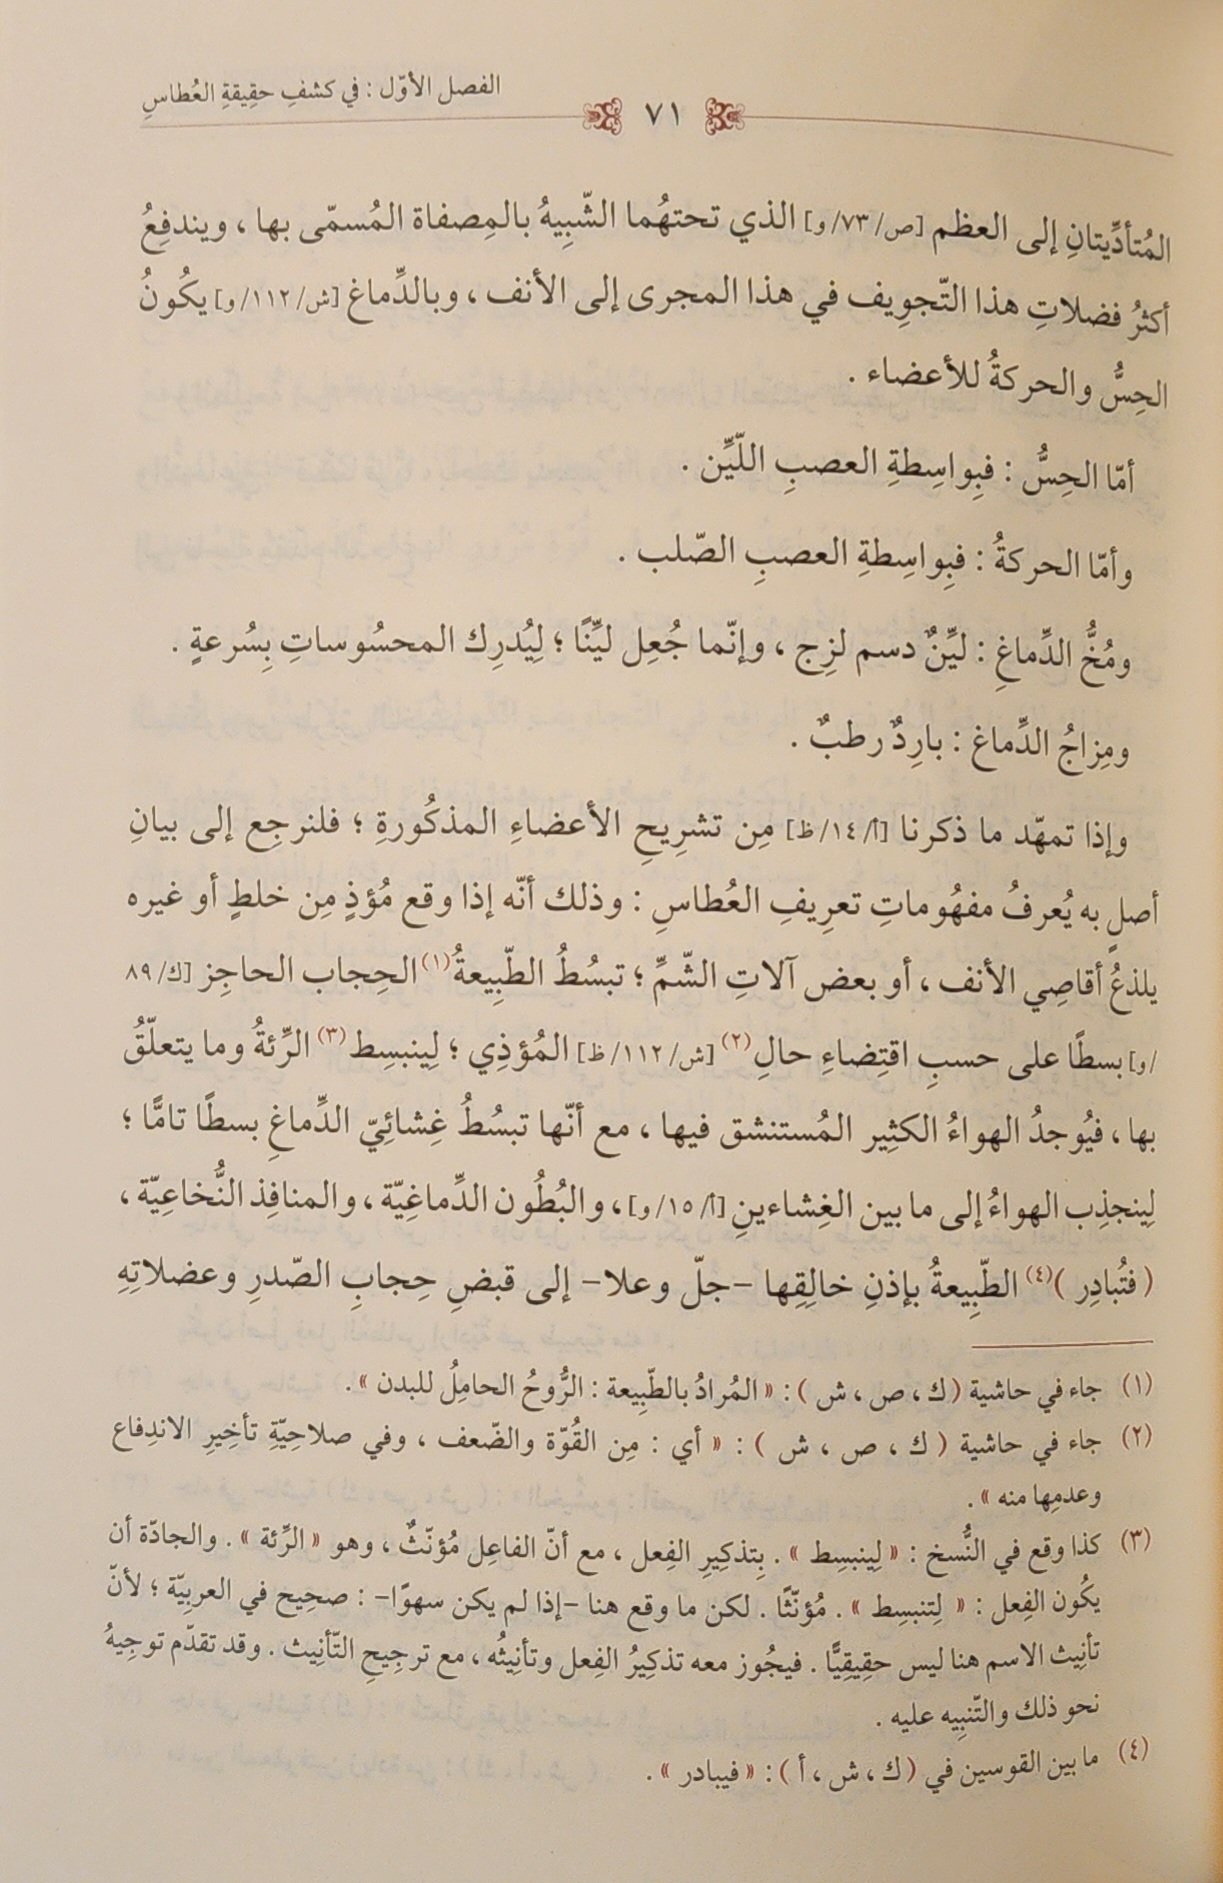 الفصل الأوّل : في كشفِ حقِيقةِ العُطاسِ
٧١
المُتأدِّيتانِ إلى العظم [ص/ ٧٣/ و] الذي تحتهُما الشّبِيهُ بالمِصفاة المُسمّى بها ، ويندفِعُ
أكثرُ فضلاتِ هذا التّجوِيف في هذا المجرى إلى الأنف ، وبالدِّماغ [ش/ ١١٢/ و] يكُونُ
الحِسُّ والحركةُ للأعضاء .
أمّا الحِسُّ : فبِواسِطةِ العصبِ اللّيِّن .
وأمّا الحركةُ : فبِواسِطةِ العصبِ الصّلب .
ومُخُّ الدِّماغِ : ليِّنٌ دسم لزِج ، وإنّما جُعِل ليِّنًا ؛ لِيُدرِك المحسُوساتِ بِسُرعةٍ .
ومِزاجُ الدِّماغ : بارِدٌ رطبٌ .
وإذا تمهّد ما ذكرنا [أ/ ١٤/ ظ] مِن تشرِيحِ الأعضاءِ المذكُورةِ ؛ فلنرجِع إلى بيانِ
أصلٍ به يُعرفُ مفهُوماتِ تعرِيفِ العُطاسِ : وذلك أنّه إذا وقع مُؤذٍ مِن خلطٍ أو غيره
يلذعُ أقاصِي الأنف ، أو بعض آلاتِ الشّمِّ ؛ تبسُطُ الطّبِيعةُ(١) الحِجاب الحاجِز [ك/ ٨٩
/و] بسطًا على حسبِ اقتِضاءِ حالِ(٢) [ش/ ١١٢/ ظ] المُؤذِي ؛ لِينبسِط(٣) الرِّئةُ وما يتعلّقُ
بها ، فيُوجدُ الهواءُ الكثِير المُستنشق فيها ، مع أنّها تبسُطُ غِشائِيّ الدِّماغِ بسطًا تامًّا ؛
لِينجذِب الهواءُ إلى ما بين الغِشاءينِ [أ/ ١٥/ و]، والبُطُون الدِّماغِيّة ، والمنافِذ النُّخاعِيّة ،
( فتُبادِر )(٤) الطّبِيعةُ بإذنِ خالِقِها -جلّ وعلا- إلى قبضِ حِجابِ الصّدرِ وعضلاتِهِ
(١) جاء في حاشية ( ك ، ص ، ش ) : « المُرادُ بالطّبِيعة : الرُّوحُ الحامِلُ للبدن » .
(٢) جاء في حاشية ( ك ، ص ، ش ) : « أي : مِن القُوّة والضّعف ، وفي صلاحِيّةِ تأخِيرِ الاندِفاع
وعدمِها منه » .
(٣) كذا وقع في النُّسخ : « لِينبسِط » . بِتذكِيرِ الفِعل ، مع أنّ الفاعِل مُؤنّثٌ ، وهو « الرِّئة » . والجادّة أن
يكُون الفِعل : « لِتنبسِط » . مُؤنّثًا . لكن ما وقع هنا -إذا لم يكن سهوًا- : صحِيح في العربِيّة ؛ لأنّ
تأنِيث الاسم هنا ليس حقِيقِيًّا . فيجُوز معه تذكِيرُ الفِعل وتأنِيثُه ، مع ترجِيحِ التّأنِيث . وقد تقدّم توجِيهُ
نحو ذلك والتّنبِيه عليه .
(٤) ما بين القوسين في ( ك ، ش ، أ ) : « فيبادر » .